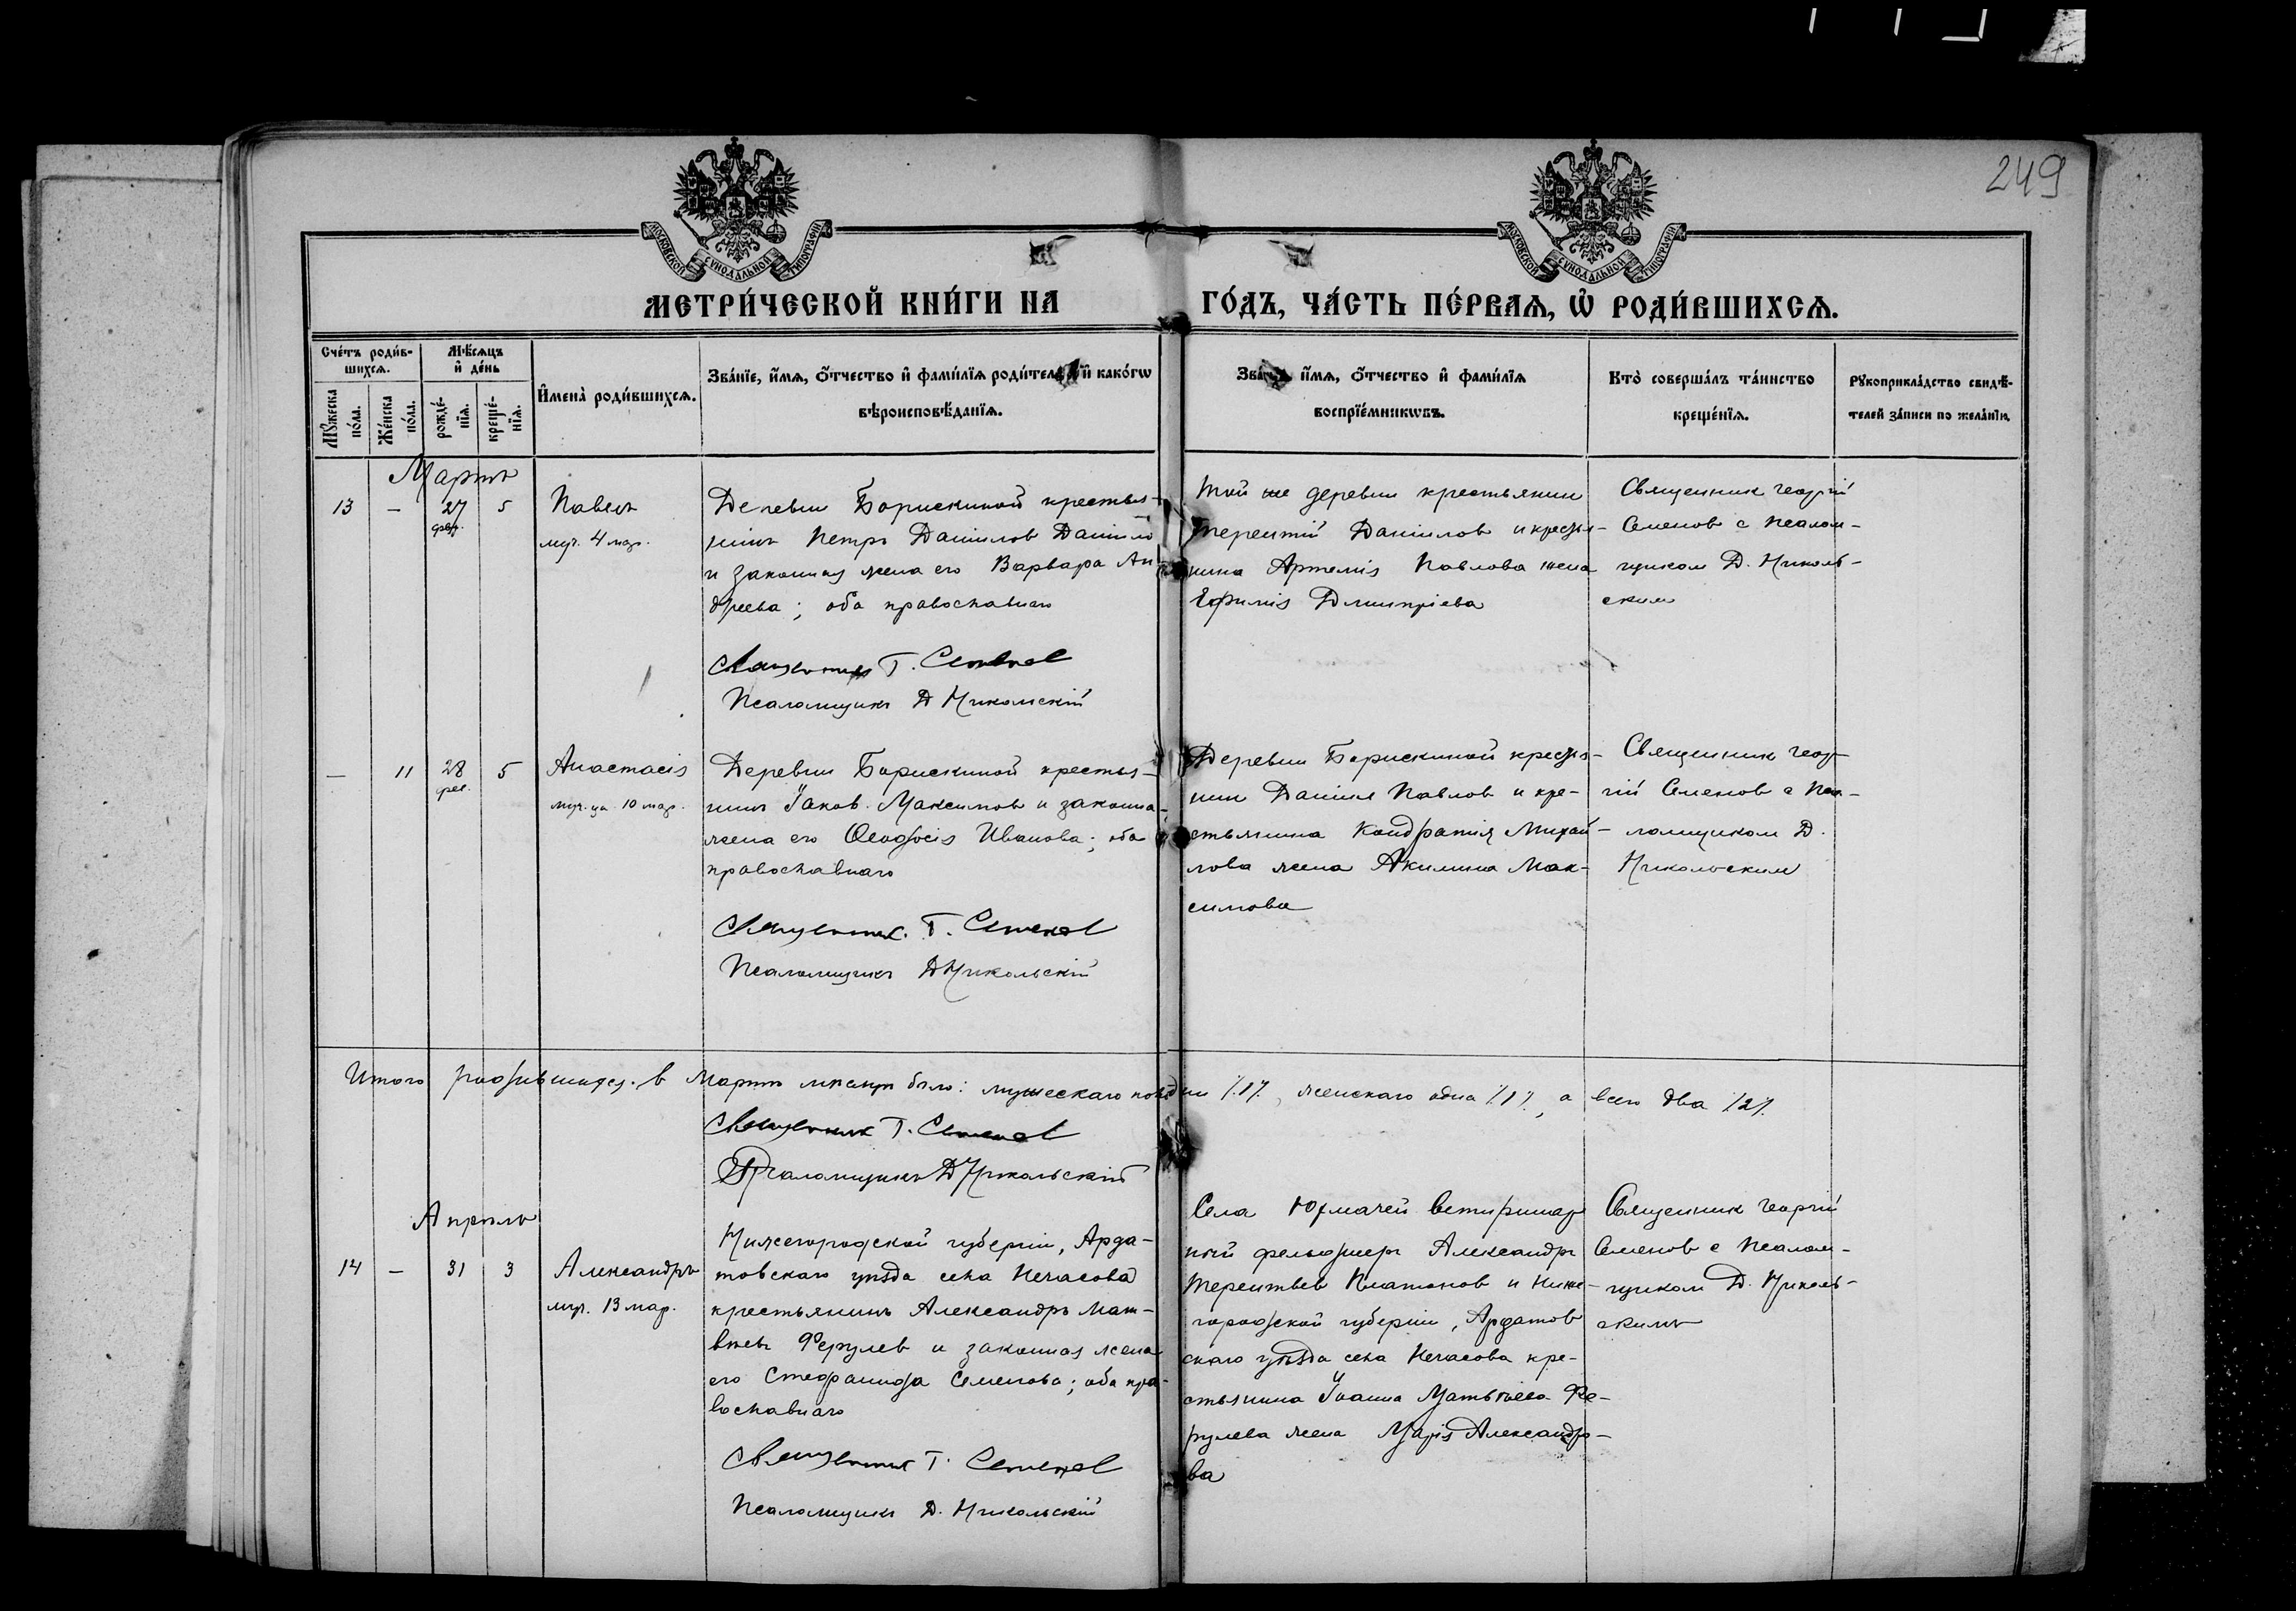 249
МОСКОВСКОЙ СѴНОДАЛЬНОЙ ТИПОГРАФІИ
МОСКОВСКОЙ СѴНОДАЛЬНОЙ ТИПОГРАФІИ
МЕТРИ́ЧЕСКОЙ КНИ́ГИ НА ГО́ДЪ, ЧА́СТЬ ПЕ́РВАЯ, Ѽ РОДИ́ВШИХСЯ.
Сче́тъ роди́в-
шихся.
Мѣ́сяцъ
и҆ де́нь
Мꙋ́жеска
по́ла.
Же́нска
по́ла.
рожде́-
нїя.
креще́-
нїя.
И҆мена̀ роди́вшихся.
Зва́нїе, и҆́мя, ѻ҆́тчество и҆ фами́лїя роди́телей и҆ како́гѡ
вѣроисповѣ́данїя.
и҆́мя, ѻ҆́тчество и҆ фами́лїя
воспрїе́мникѡвъ.
Кто̀ соверша́лъ та́инство
креще́нїя.
Рꙋкоприкла́дство свидѣ́-
телей за́писи по жела́нїю.
Мартъ
13 — 27 фев. 5
Павелъ
муч. 4 мар.
Деревни Борискиной крестья-
нинъ Петръ Даніилов Данило
и законная жена его Варвара Ан-
дреева; оба православнаго
Священникъ Г. Семенов
Псаломщикъ Д Никольскій
той же деревни крестьянин
Терентій Даніилов и крестья-
нина Артемія Павлова жена
Евфимія Димитріева
Священник Георгій
Семенов с псалом-
щиком Д. Николь-
ским
— 11 28 фев. 5
Анастасія
муч-ца 10 мар.
Деревни Борискиной крестья-
нинъ Іаков Максимов и законна-
жена его Ѳеодосія Иванова; оба
православнаго
Священник. Г. Семенов
Псаломщикъ Д Никольскій
Деревни Борискиной крестья-
нин Даніил Павлов и кре-
стьянина Кондратія Михай-
лова жена Акилина Мак-
симова
Священник Геор-
гій Семенов с пса-
ломщиком Д.
Никольским
Итого родившихся в Мартѣ мѣсяцѣ было: мужескаго пола один /.1/., женскаго одна /.1/., а всего два /.2/.
Священник Г. Семенов
Псаломщикъ Д Никольскій
Апрѣль
14 — 31 3
Александръ
муч. 13 мар.
Нижегородской губерніи, Арда-
товскаго уѣзда села Нечасова
крестьянинъ Александръ Мат-
вѣевъ Ферулев и законная жена
его Стефанида Семенова; оба пра-
вославнаго
Священник Г. Семенов
Псаломщикъ Д. Никольскій
Села Юрмачей ветиринар
ный фельдшеръ Александръ
Терентьев Платонов и Ниже-
городской губерніи, Ардатов
скаго уѣзда села Нечасова кре-
стьянина Іоанна Матвѣева Фе-
рулева жена Марія Александро-
ва
Священник Георгій
Семенов с псалом-
щиком Д. Николь-
скимъ